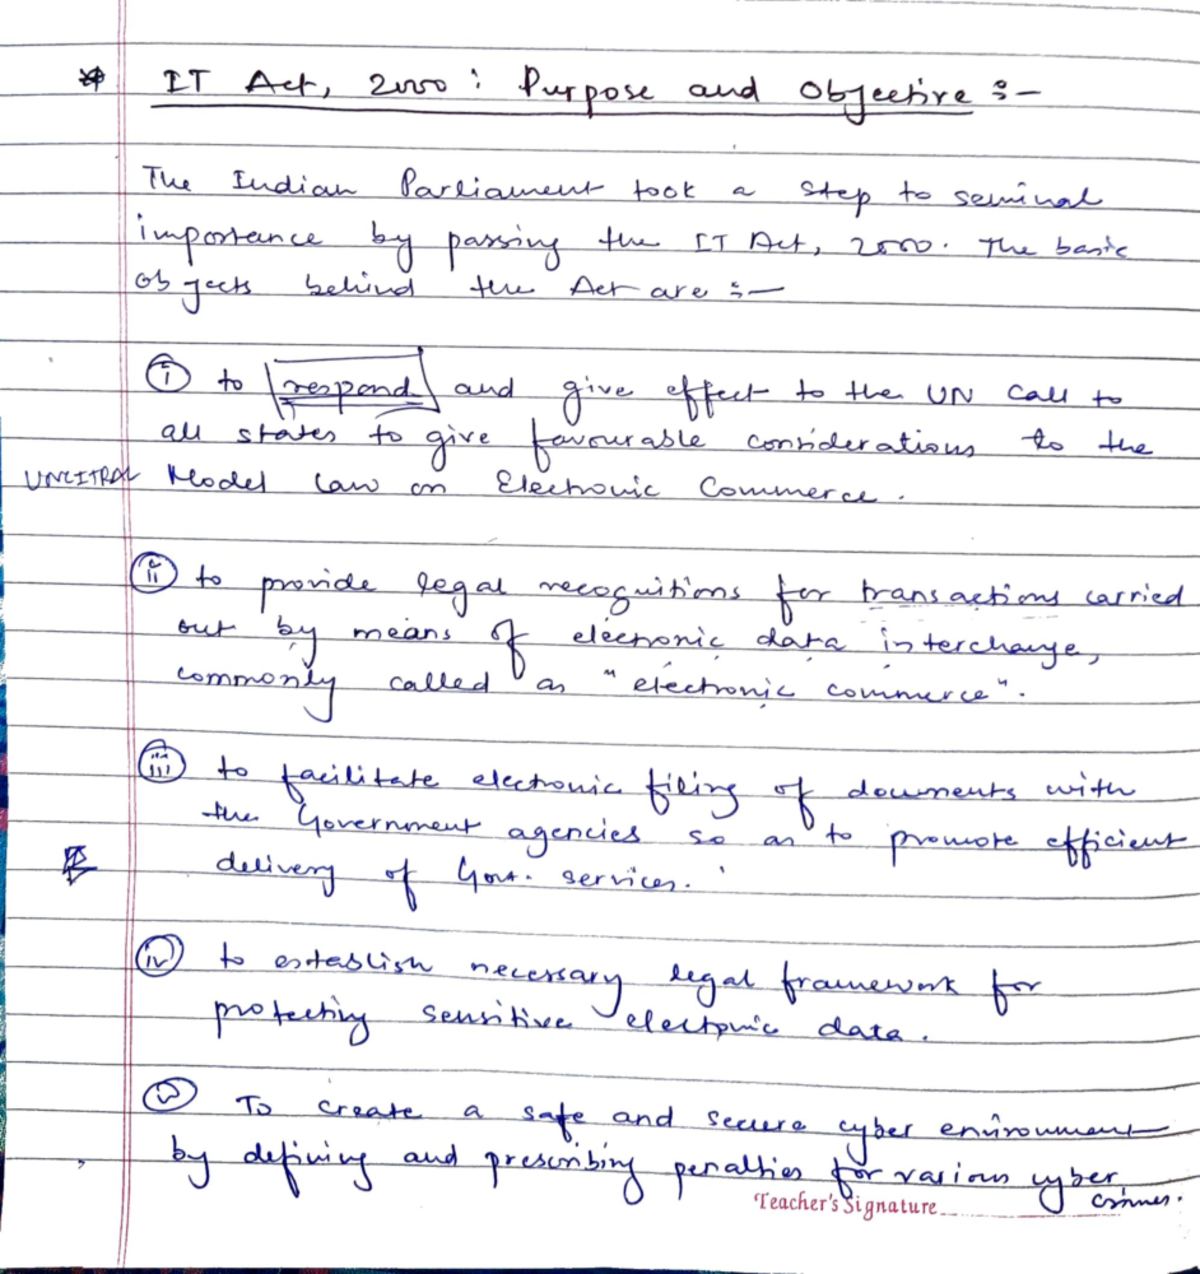 IT Act, 2000 : Purpose and Objective :-
The Indian Parliament took a step to seminal
importance by passing the IT Act, 2000. The basic
objects behind the Act are :-
(i) to respond and give effect to the UN Call to
all states to give favourable considerations to the
UNCITRAL Model Law on Electronic Commerce.
(ii) to provide legal recognitions for transactions carried
out by means of electronic data interchange,
commonly called as "electronic commerce".
(iii) to facilitate electronic filing of documents with
the Government agencies so as to promote efficient
delivery of Govt. services.
(iv) to establish necessary legal framework for
protecting sensitive electronic data.
(v) To create a safe and secure cyber environment
by defining and prescribing penalties for various cyber
crimes.
Teacher's Signature